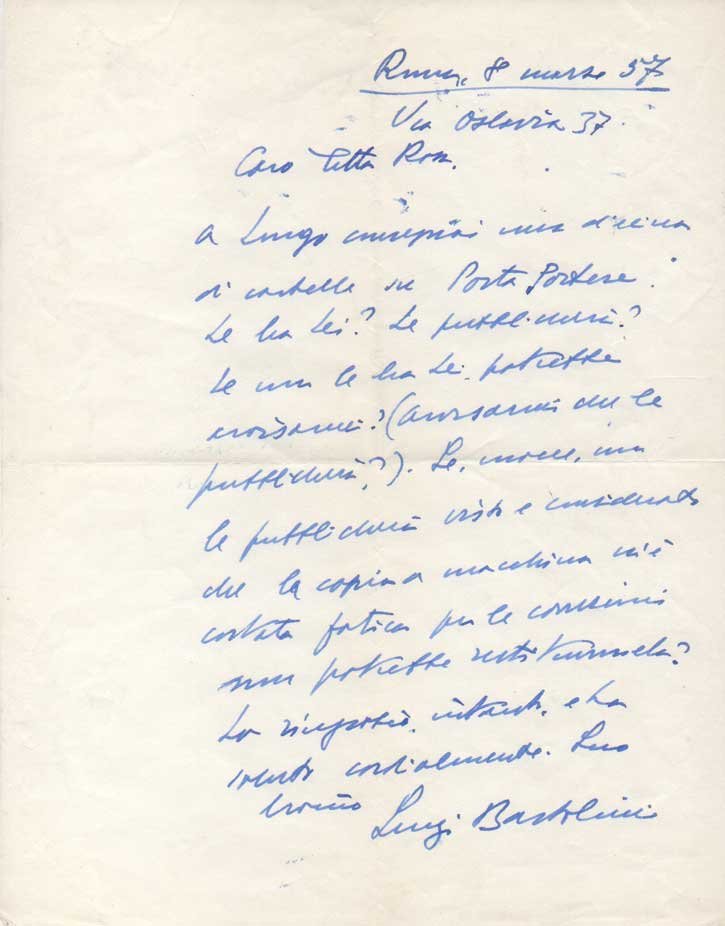 Roma, 8 marzo 57
Via Oslavia 37.
Caro Titta Rosa.
a Lungo consegnai una diecina
di cartelle su Porta Portese.
Le ha Lei? Le pubblicherà?
Se non le ha Lei, potrebbe
avvisarmi? (avvisarmi che le
pubblicherà?). Se, invece, non
le pubblicherà visto e considerato
che la copia a macchina m'è
costata fatica per le correzioni
non potrebbe restituirmela?
La ringrazio, intanto, e La
saluto cordialmente. Suo
Luigi Bartolini